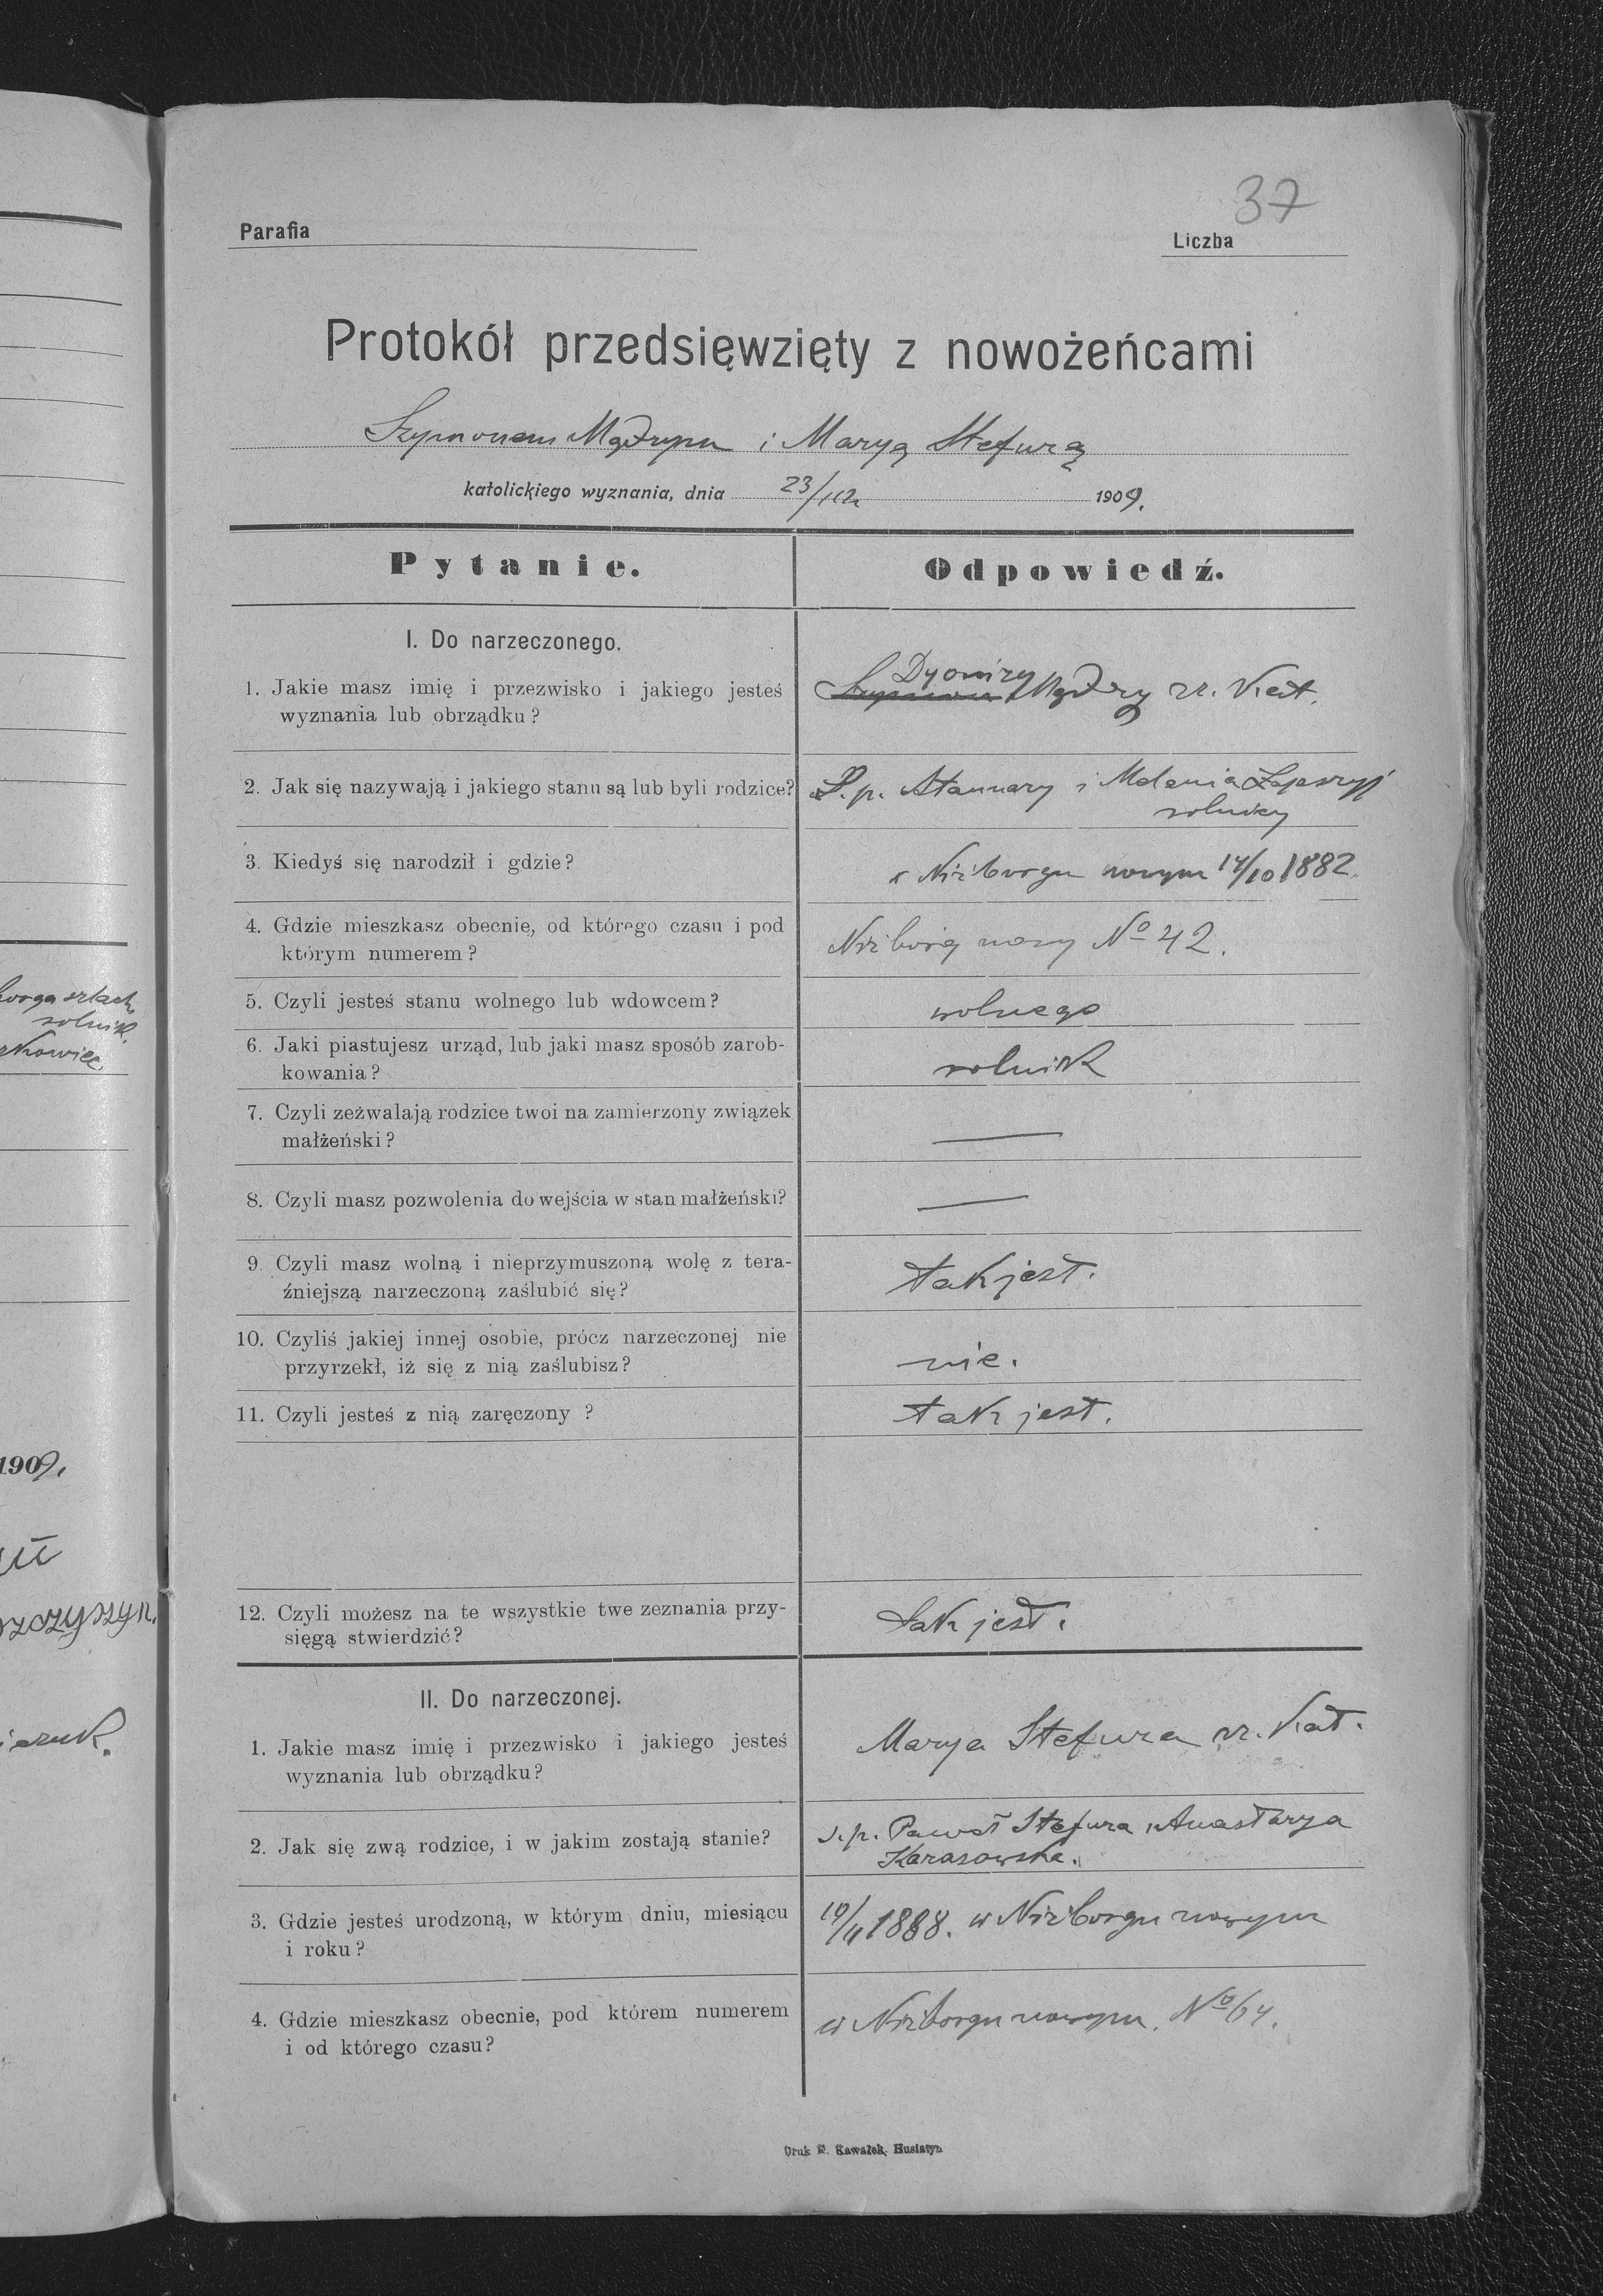 37
Parafia
Liczba
Protokół przedsięwzięty z nowożeńcami
Szymonem Mądrym i Maryą Stefurą
katolickiego wyznania, dnia 23/ 1909.
Pytanie.
Odpowiedź.
I. Do narzeczonego.
1. Jakie masz imię i przezwisko i jakiego jesteś
wyznania lub obrządku?
Dyonizy
Szymon Mądry rz. kat.
2. Jak się nazywają i jakiego stanu są lub byli rodzice?
Ś. p. i Melania
rolnicy
3. Kiedyś się narodził i gdzie?
w Niżborgu nowym 14/10 1882.
4. Gdzie mieszkasz obecnie, od którego czasu i pod
którym numerem?
Niżborg nowy No 42.
5. Czyli jesteś stanu wolnego lub wdowcem?
wolnego
6. Jaki piastujesz urząd, lub jaki masz sposób zarob-
kowania?
rolnik
7. Czyli zeżwalają rodzice twoi na zamierzony związek
małżeński?
—
8. Czyli masz pozwolenia do wejścia w stan małżeński?
—
9. Czyli masz wolną i nieprzymuszoną wolę z tera-
źniejszą narzeczoną zaślubić się?
tak jest.
10. Czyliś jakiej innej osobie, prócz narzeczonej nie
przyrzekł, iż się z nią zaślubisz?
nie.
11. Czyli jesteś z nią zaręczony ?
tak jest.
12. Czyli możesz na te wszystkie twe zeznania przy-
sięgą stwierdzić?
tak jest.
II. Do narzeczonej.
1. Jakie masz imię i przezwisko i jakiego jesteś
wyznania lub obrządku?
Marya Stefura rz. kat.
2. Jak się zwą rodzice, i w jakim zostają stanie?
ś. p. Paweł Stefura i Anastazya
Karasowska.
3. Gdzie jesteś urodzoną, w którym dniu, miesiącu
i roku?
1888. w Niżborgu nowym
4. Gdzie mieszkasz obecnie, pod którem numerem
i od którego czasu?
w Niżborgu nowym. No 64.
Druk Kawałek, Husiatyn
rolnik.
1909.